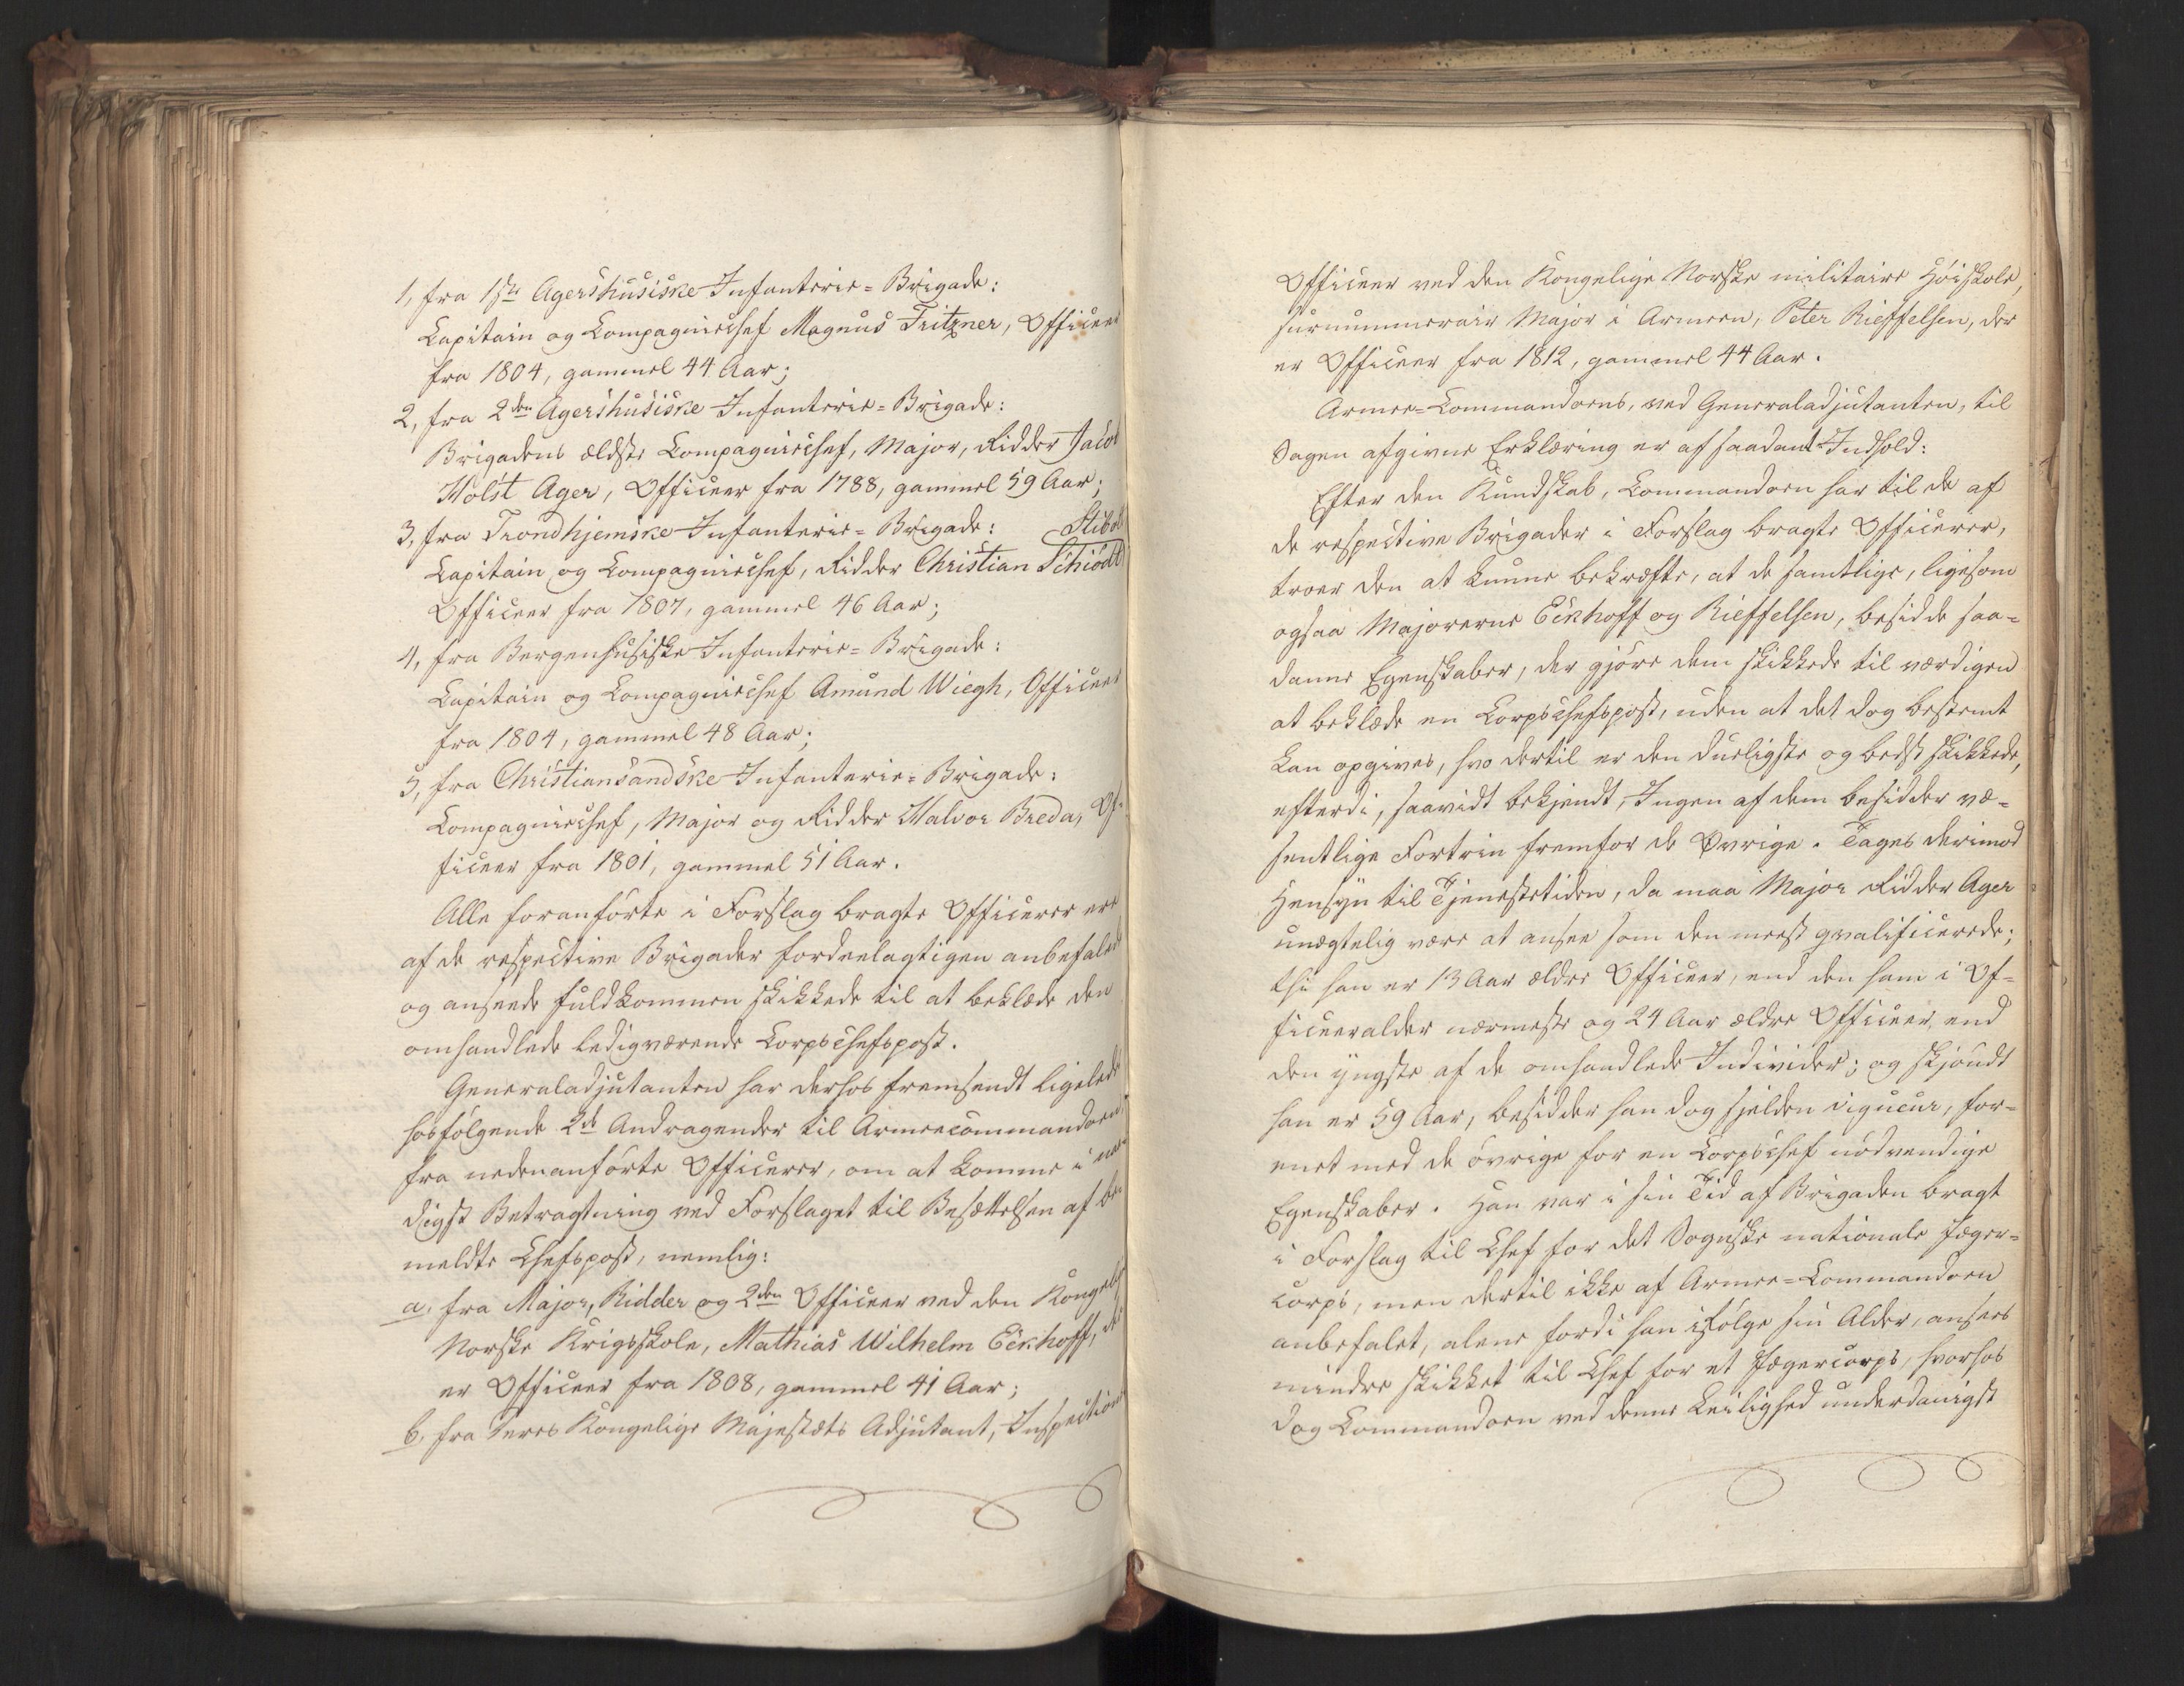 1, fra 1ste Agershusiske Infanterie=Brigade:
Capitain og Compagniechef Magnus Fritzner, Officeer
fra 1804, gammel 44 Aar;
2, fra 2den Agershusiske Infanterie=Brigade:
Brigadens ældste Compagniechef, Major, Ridder Jacob
Holst Ager, Officeer fra 1788, gammel 59 Aar;
3, fra Trondhjemske Infanterie=Brigade: Stibolt
Capitain og Compagniechef, Ridder Christian Schiödt
Officeer fra 1807, gammel 46 Aar;
4, fra Bergenhusiske Infanterie=Brigade:
Capitain og Compagniechef Amund Wiegh, Officeer
fra 1804, gammel 48 Aar;
5, fra Christiansandske Infanterie=Brigade:
Compagniechef, Major og Ridder Halvor Breda, Of-
ficeer fra 1801, gammel 51 Aar.
Alle foranførte i Forslag bragte Officerer ere
af de respective Brigader fordeelagtigen anbefalede
og anseede fuldkommen skikkede til at beklæde den
omhandlede ledigværende Corpschefspost.
Generaladjutanten har derhos fremsendt ligeledes
hosfølgende 2de Andragender til Armeecommandoen
fra nedenanførte Officerer, om at komme i naa-
digst Betragtning ved Forslaget til Besættelsen af be-
meldte Chefspost, nemlig:
a. fra Major, Ridder og 2den Officeer ved den Kongelige
Norske Krigsskole, Mathias Wilhelm Eckhoff, der
er Officeer fra 1808, gammel 41 Aar;
b. fra Deres Kongelige Majestæts Adjutant, Inspections
Officeer ved den Kongelige Norske militaire Høiskole,
surnummerair Major i Armeen, Peter Rieffelsen, der
er Officeer fra 1812, gammel 44 Aar.
Armee=Commandoens, ved Generaladjutanten, til
Sagen afgivne Erklæring er af saadant Indhold:
Efter den Kundskab, Commandoen har til de af
de respective Brigader i Forslag bragte Officerer,
troer den at kunne bekræfte, at de samtlige, ligesom
ogsaa Majorerne Eckhoff og Rieffelsen, besidde saa=
danne Egenskaber, der gjøre dem skikkede til værdigen
at beklæde en Corpschefspost, uden at det dog bestemt
kan opgives, hvo dertil er den dueligste og bedst skikkede,
efterdi, saavidt bekjendt, Ingen af dem besidder væ=
sentlige Fortrin fremfor de Øvrige. Tages derimod
Hensyn til Tjenestetiden, da maa Major Ridder Ager
unægtelig være at ansee som den meest qvalificerede;
thi han er 13 Aar ældre Officeer, end den ham i Of=
ficeeralder nærmeste og 24 Aar ældre Officeer, end
den yngste af de omhandlede Individer; og skjøndt
han er 59 Aar, besidder han dog sjelden vigueur, for=
enet med de øvrige for en Corpschef nødvendige
Egenskaber. Han var i sin Tid af Brigaden bragt
i Forslag til Chef for det Sognske nationale Jæger=
corps, men dertil ikke af Armee=Commandoen
anbefalet, alene fordi han ifølge sin Alder, ansees
mindre skikket til Chef for et Jægercorps, hvorhos
dog Commandoen ved denne Leilighed underdanigst